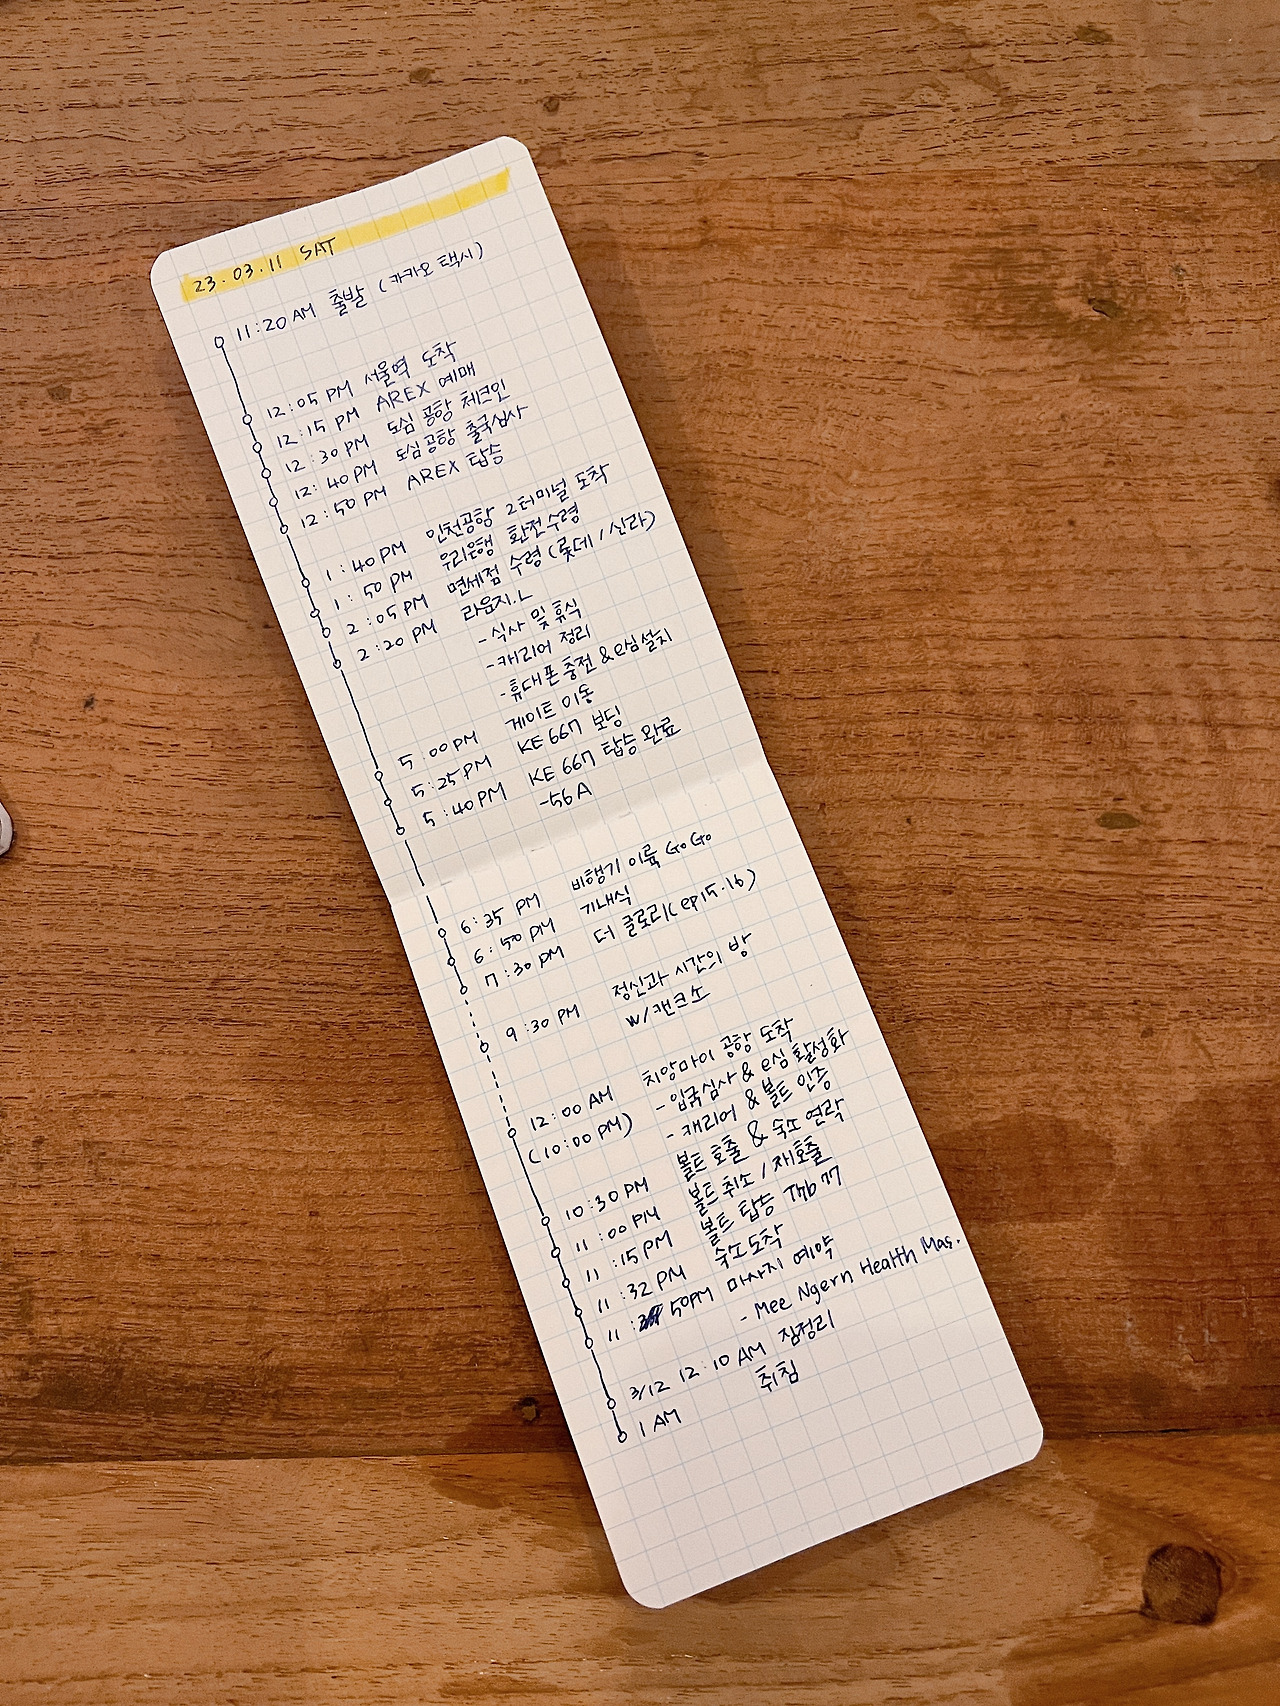 23.03.11 SAT
11:20 AM 출발 (카카오 택시)
12:05 PM 서울역 도착
12:15 PM AREX 예매
12:30 PM 도심공항 체크인
12:40 PM 도심공항 출국심사
12:50 PM AREX 탑승
1:40 PM 인천공항 2터미널 도착
1:50 PM 우리은행 환전수령
2:05 PM 면세점 수령 (롯데/신라)
2:20 PM 라운지.L
-식사 및 휴식
-캐리어 정리
-휴대폰 충전 & e심 설치
5:00 PM 게이트 이동
5:25 PM KE 667 보딩
5:40 PM KE 667 탑승 완료
-56A
6:35 PM 비행기 이륙 GoGo
6:50 PM 기내식
7:30 PM 더 글로리(ep15.16)
9:30 PM 정신과 시간의 방
w/캔크소
12:00 AM 치앙마이 공항 도착
(10:00 PM) -입국심사 & e심 활성화
-캐리어 & 볼트 인증
10:30 PM 볼트 호출 & 숙소 연락
11:00 PM 볼트 취소 / 재호출
11:15 PM 볼트 탑승
11:32 PM 숙소도착
11:50PM 마사지 예약
-Mee Ngern Health Mas.
3/12 12:10 AM 짐정리
1 AM 취침